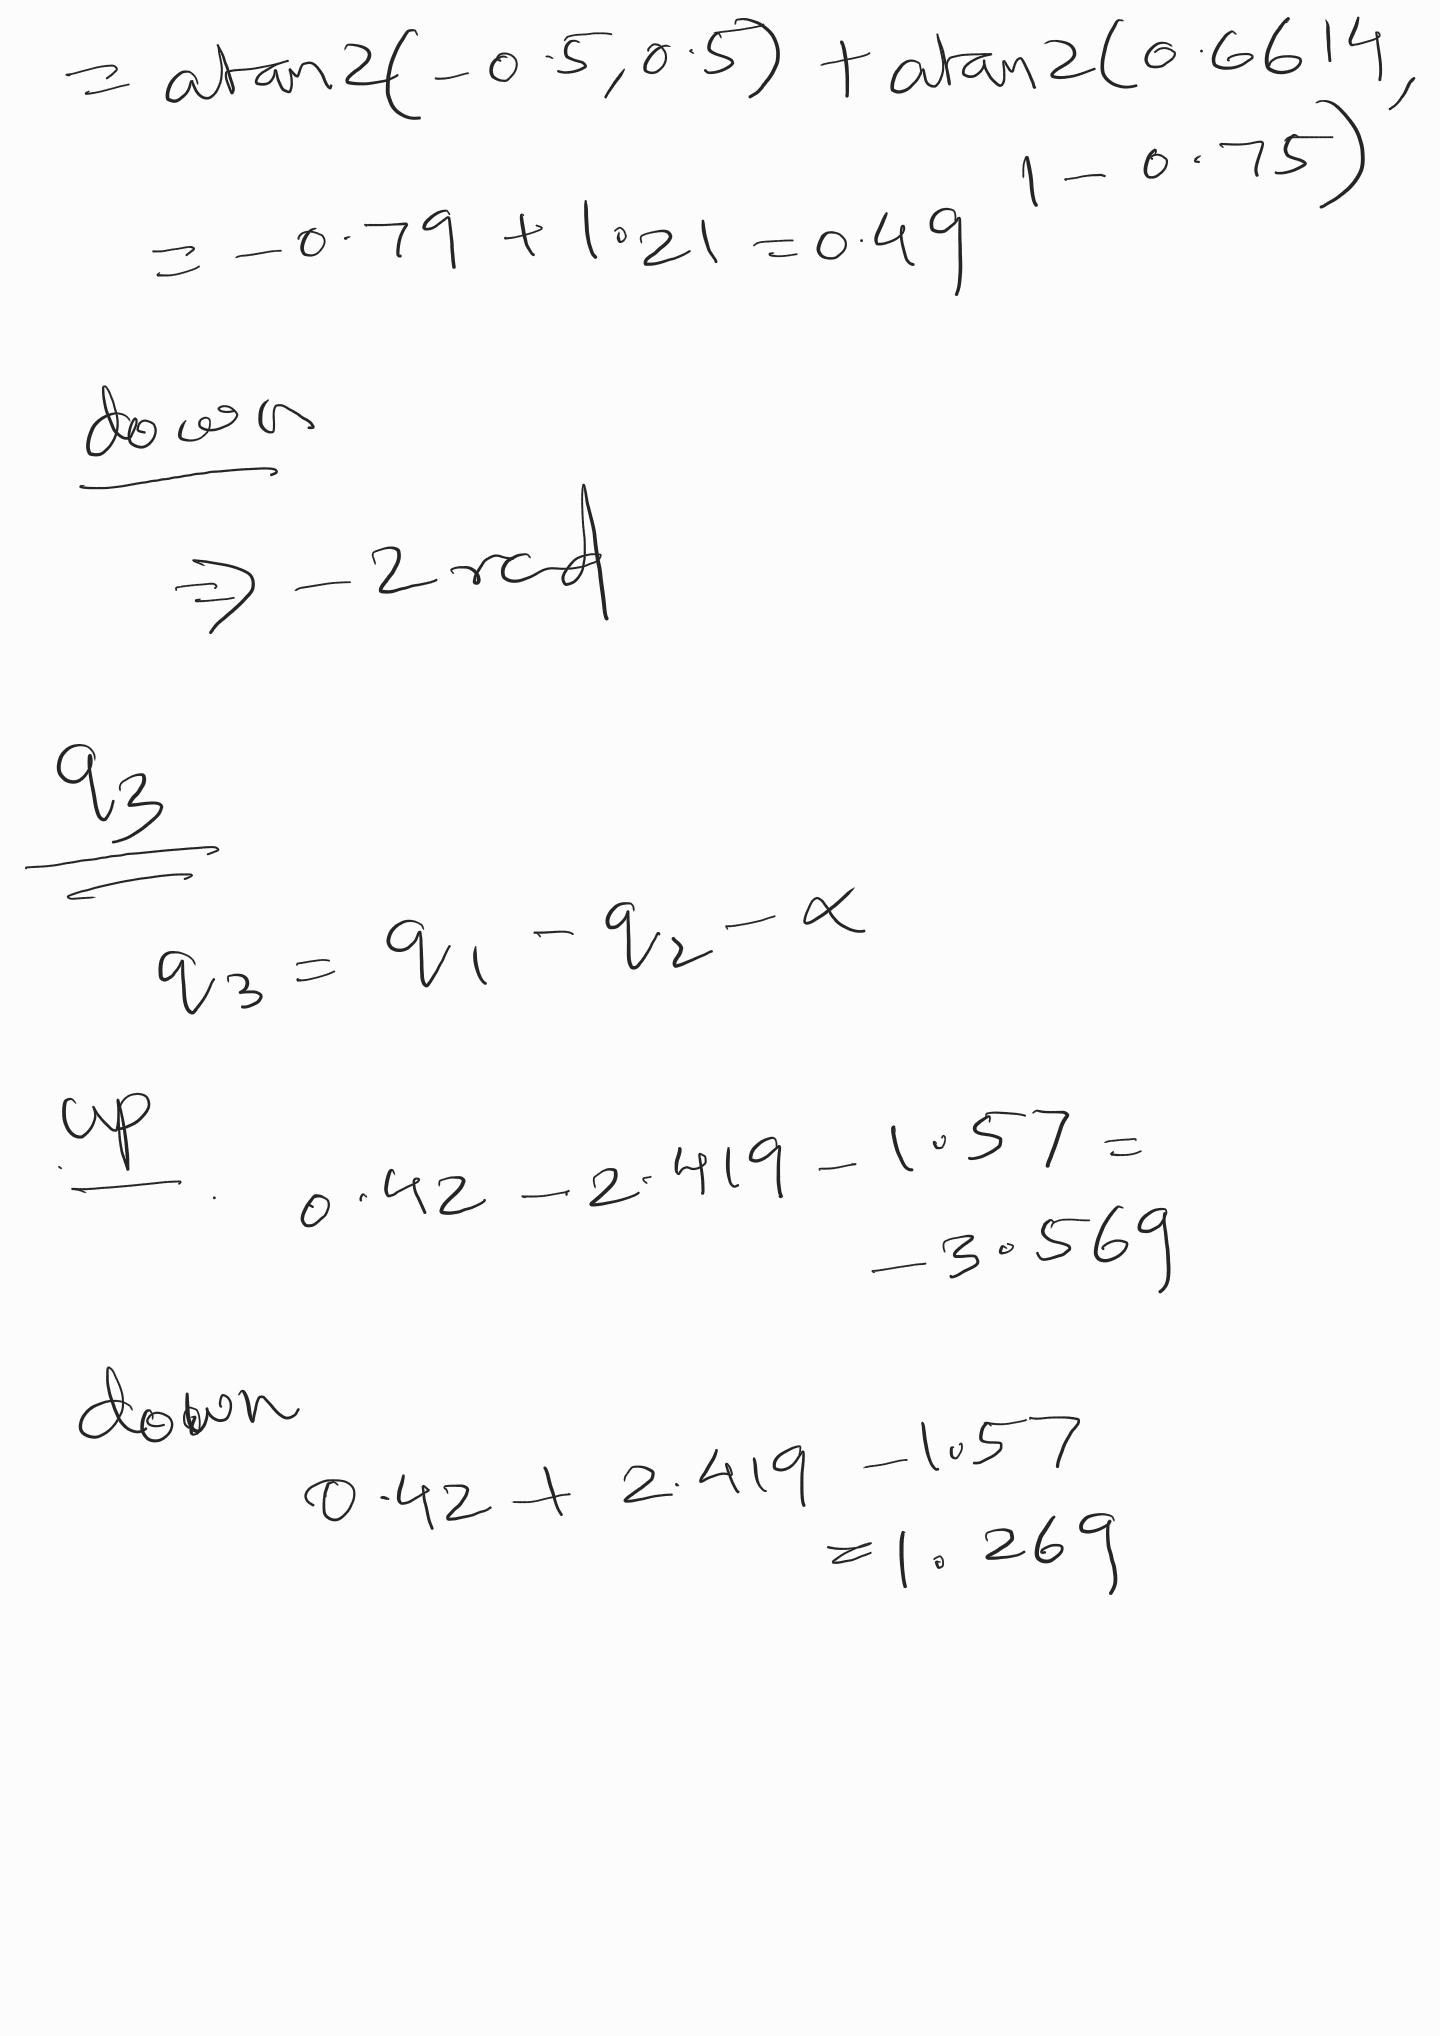 = atan2(-0.5, 0.5) + atan2(0.6614,
1 - 0.75)
= -0.79 + 1.21 = 0.49
down
⇒ -2 rad
q3
q3 = q1 - q2 - α
up
0.42 - 2.419 - 1.57 =
-3.569
down
0.42 + 2.419 - 1.57
= 1.269